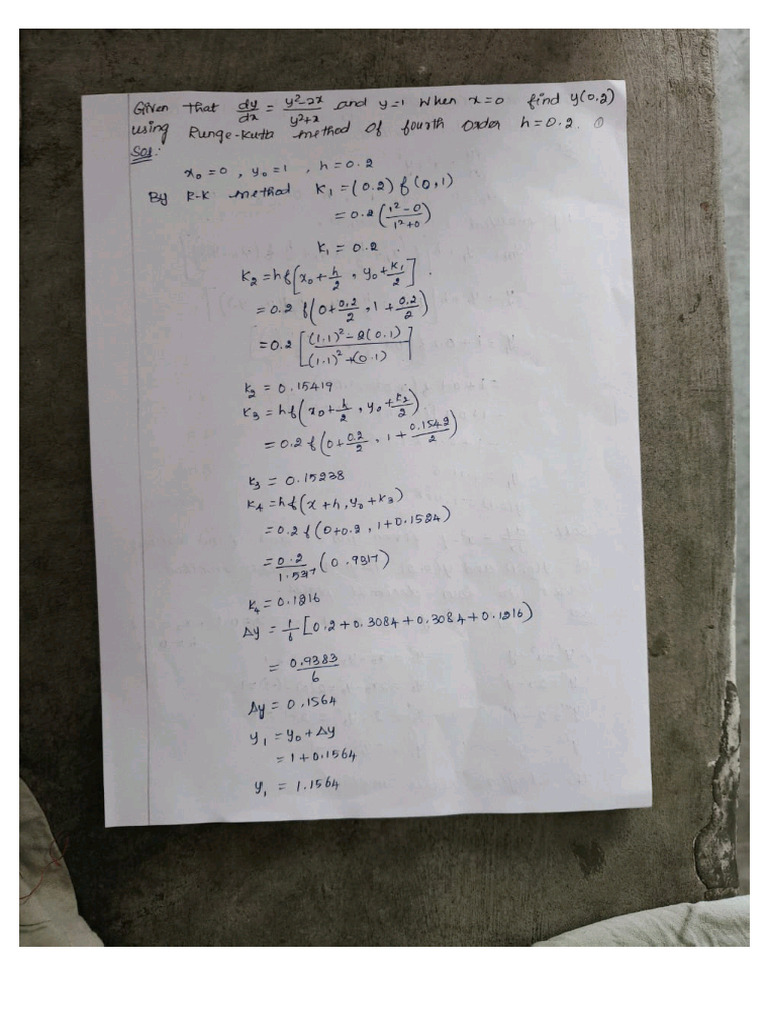 Given that dy/dx = y²-2x / y²+x and y=1 when x=0 find y(0.2)
using Runge-Kutta method of fourth order h=0.2.
Sol:
x₀=0, y₀=1, h=0.2
By R-K method K₁=(0.2) f(0,1)
=0.2(1²-0 / 1²+0)
K₁=0.2
K₂=hf[x₀+h/2, y₀+K₁/2].
=0.2 f(0+0.2/2, 1+0.2/2)
=0.2[(1.1)²-2(0.1) / (1.1)²+(0.1)]
K₂=0.15419
K₃=hf(x₀+h/2, y₀+K₂/2)
=0.2f(0+0.2/2, 1+0.1542/2)
K₃=0.15238
K₄=hf(x+h, y₀+K₃)
=0.2f(0+0.2, 1+0.1524)
=0.2/1.5217(0.9217)
K₄=0.1216
Δy=1/6[0.2+0.3084+0.3084+0.1216)
=0.9383/6
Δy=0.1564
y₁=y₀+Δy
=1+0.1564
y₁=1.1564